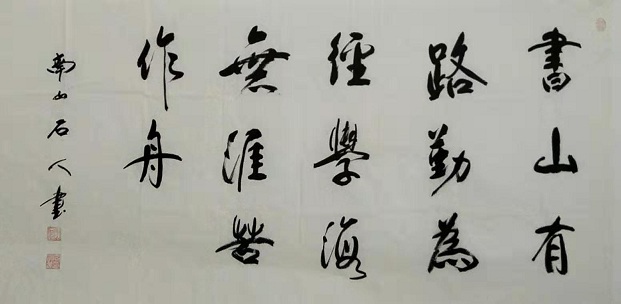 書山有
路勤為
徑學海
無涯苦
作舟
南山石人書